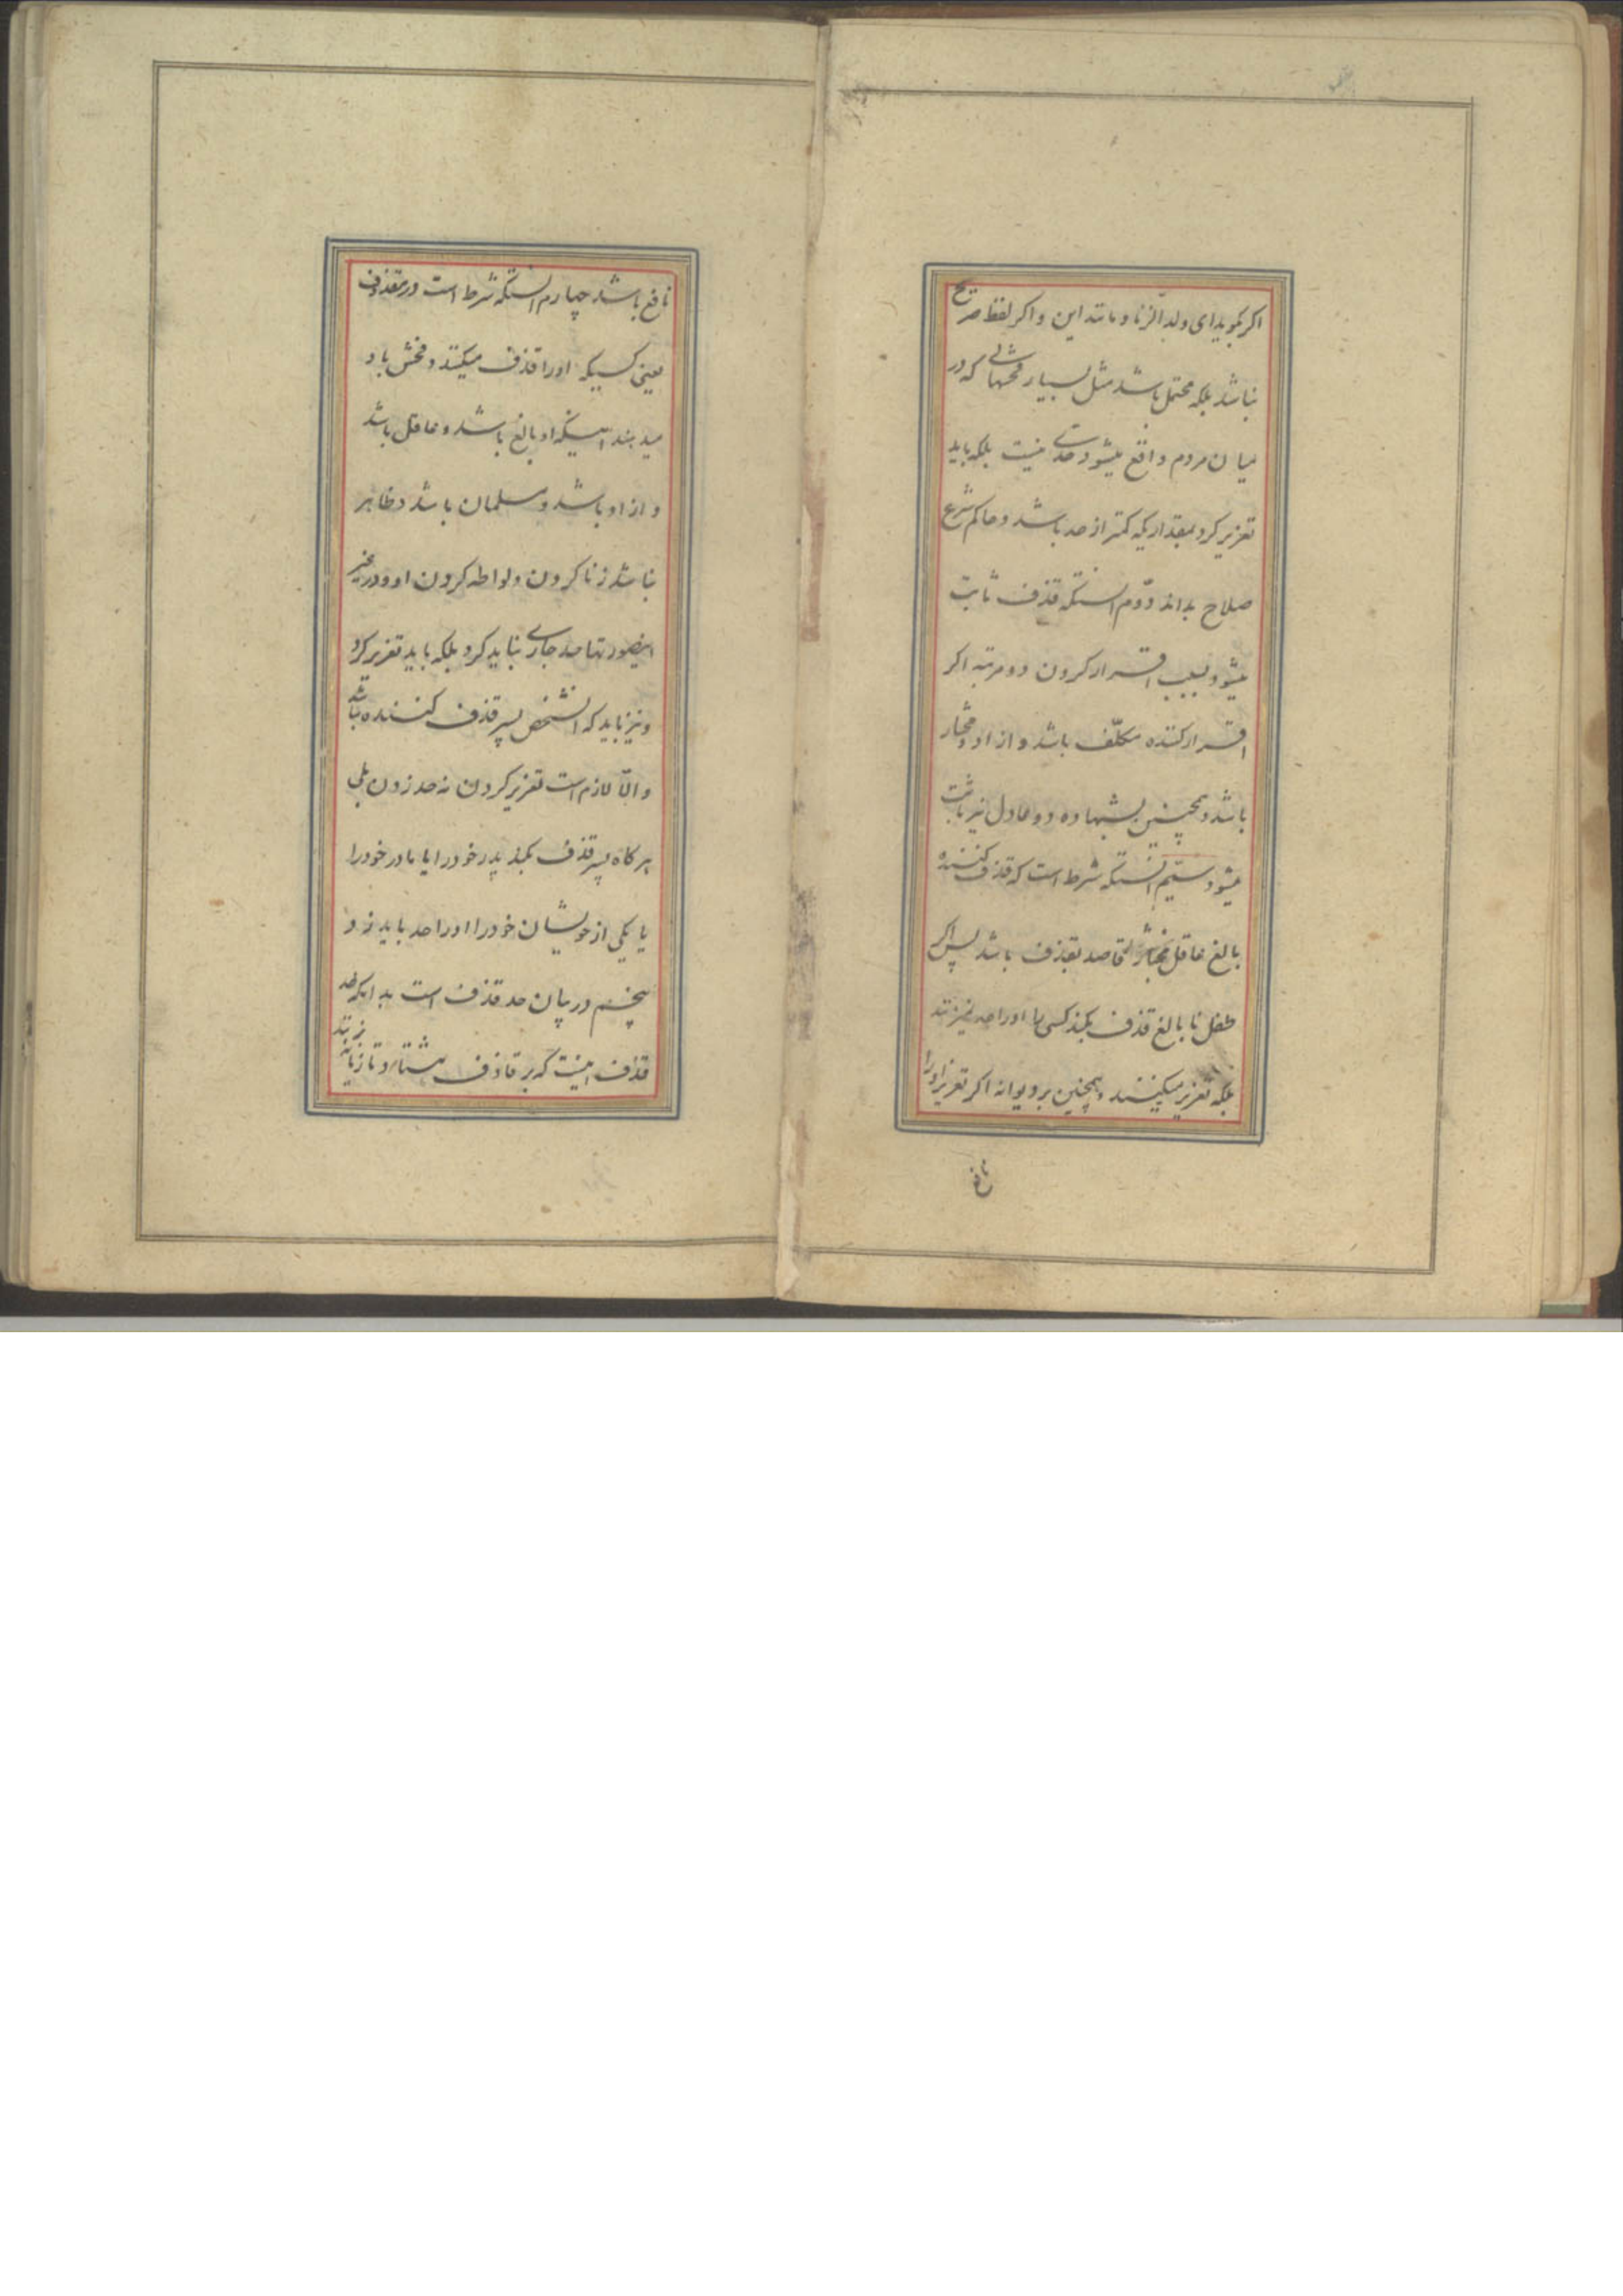 اکر بکوید ای ولد الزنا و مانند این و اکر لفظ صریح
نباشد بلکه محتمل باشد مثل بسیار فحشهائی که در
میان مردم واقع میشود حدی نیست بلکه باید
تعزیر کرد بمقداریکه کمتر از حد باشد و حاکم شرع
صلاح بداند دوّم انستکه قذف ثابت
میشود بسبب اقرار کردن دو مرتبه اکر
اقرار کننده مکلّف باشد و ازاد و مختار
باشد و همچنین بشهاده دو عادل نیز ثابت
میشود سیّم انستکه شرط است که قذف کننده
بالغ عاقل مختار قاصد بقذف باشد پس اکر
طفل نابالغ قذف بکند کسی را او را حد نمیزنند
بلکه تعزیر میکنند و همچنین بر دیوانه اکر تعزیر او را
نافع
نافع باشد چهارم انستکه شرط است در مقذوف
یعنی کسیکه او را قذف میکنند و فحش باو
میدهند اینکه او بالغ باشد و عاقل باشد
و ازاد باشد و مسلمان باشد و ظاهر
نباشد زنا کردن و لواطه کردن او و در غیر
اینصورتها حد جاری نباید کرد بلکه باید تعزیر کرد
و نیز باید که انشخص پسر قذف کننده نباشد
و الّا لازم است تعزیر کردن نه حد زدن بلی
هر کاه پسر قذف بکند پدر خود را یا مادر خود را
یا یکی از خویشان خود را او را حد باید زد
پنجم در بیان حد قذف است بدانکه حد
قذف اینست که بر قاذف هشتاد تازیانه
زنند